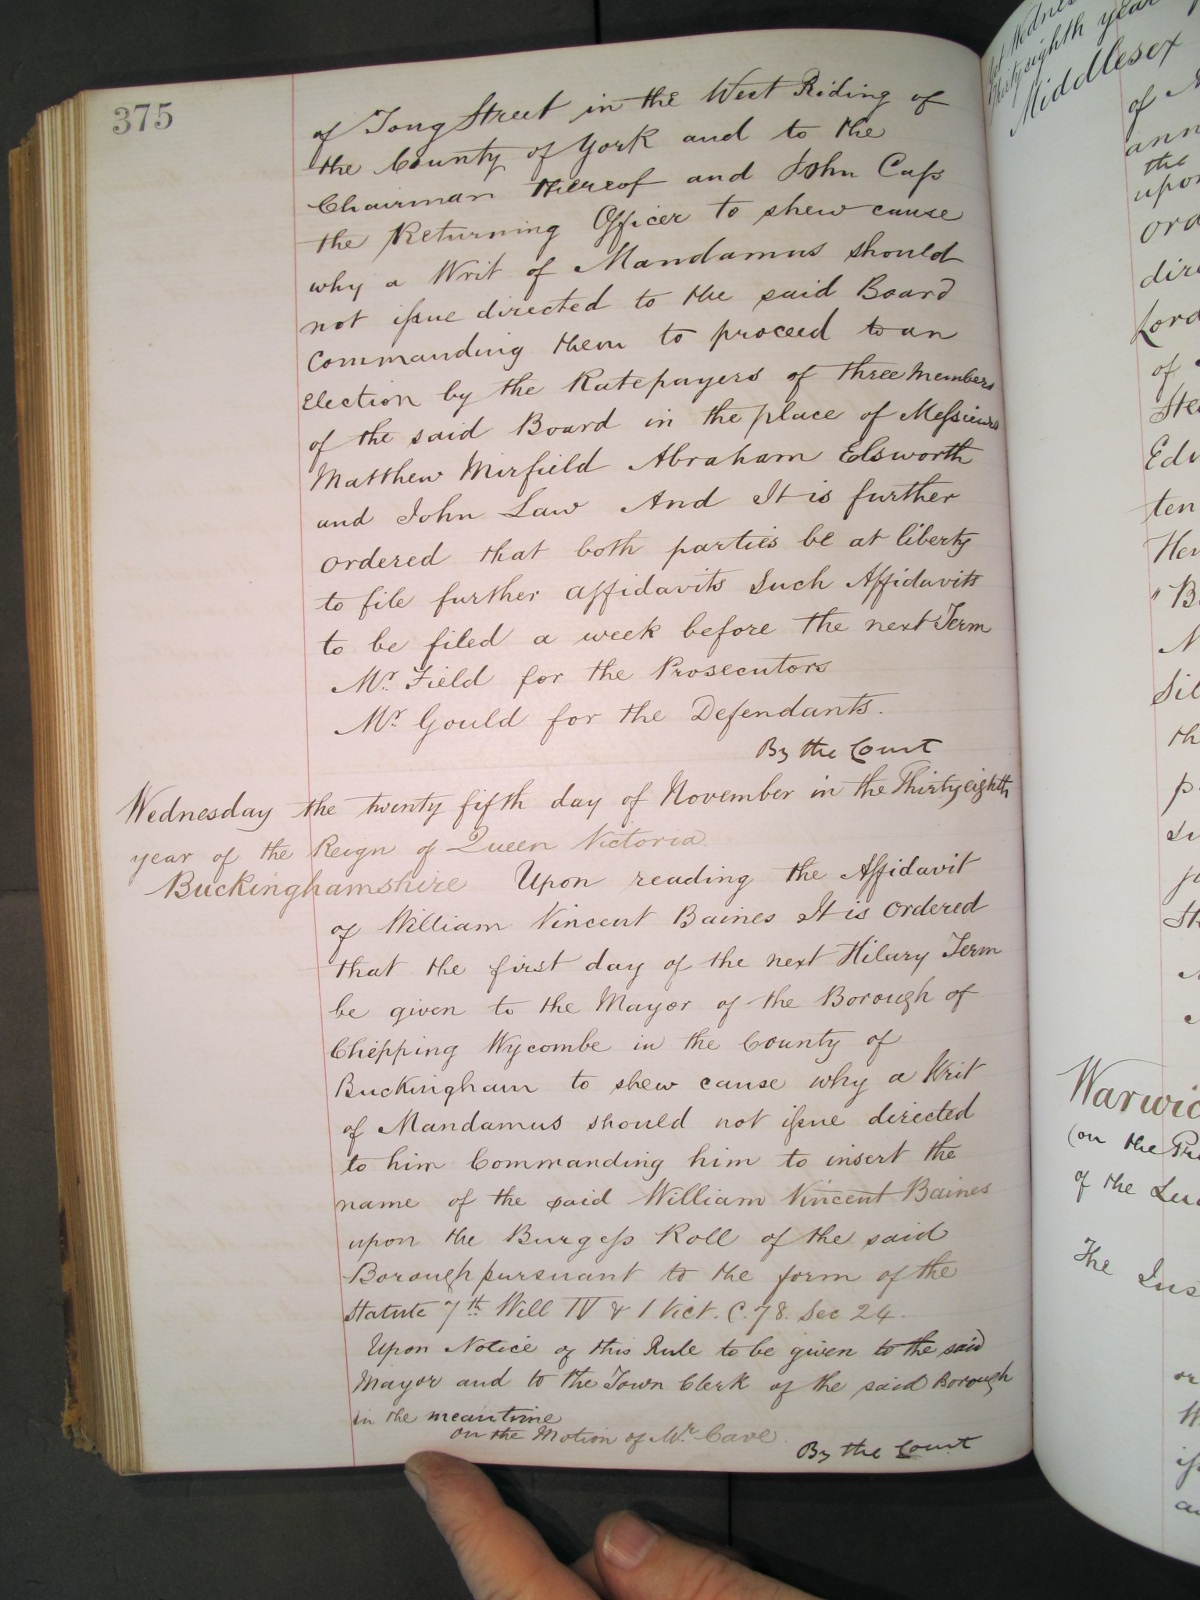 375
of Tong Street in the West Riding of
the County of York and to the
Chairman thereof and John Cass
the Returning Officer to shew cause
why a Writ of Mandamus should
not issue directed to the said Board
Commanding them to proceed to an
Election by the Ratepayers of three Members
of the said Board in the place of Messieurs
Matthew Mirfield Abraham Elsworth
and John Law And It is further
ordered that both parties be at liberty
to file further affidavits Such Affidavits
to be filed a week before the next Term
Mr. Field for the Prosecutors
Mr Gould for the Defendants.
By the Court
Wednesday the twenty fifth day of November in the Thirty eighth
year of the Reign of Queen Victoria.
Buckinghamshire Upon reading the Affidavit
of William Vincent Baines It is Ordered
that the first day of the next Hilary Term
be given to the Mayor of the Borough of
Chepping Wycombe in the County of
Buckingham to shew cause why a Writ
of Mandamus should not issue directed
to him Commanding him to insert the
name of the said William Vincent Baines
upon the Burgess Roll of the said
Borough pursuant to the form of the
Statute 7th Will IV & 1 Vict. C. 78. Sec 24.
Upon Notice of this Rule to be given to the said
Mayor and to the Town Clerk of the said Borough
in the meantime
On the Motion of Mr Cave
By the Court
Middlesex
of
the
upon
of
ten
(on the
of the
The